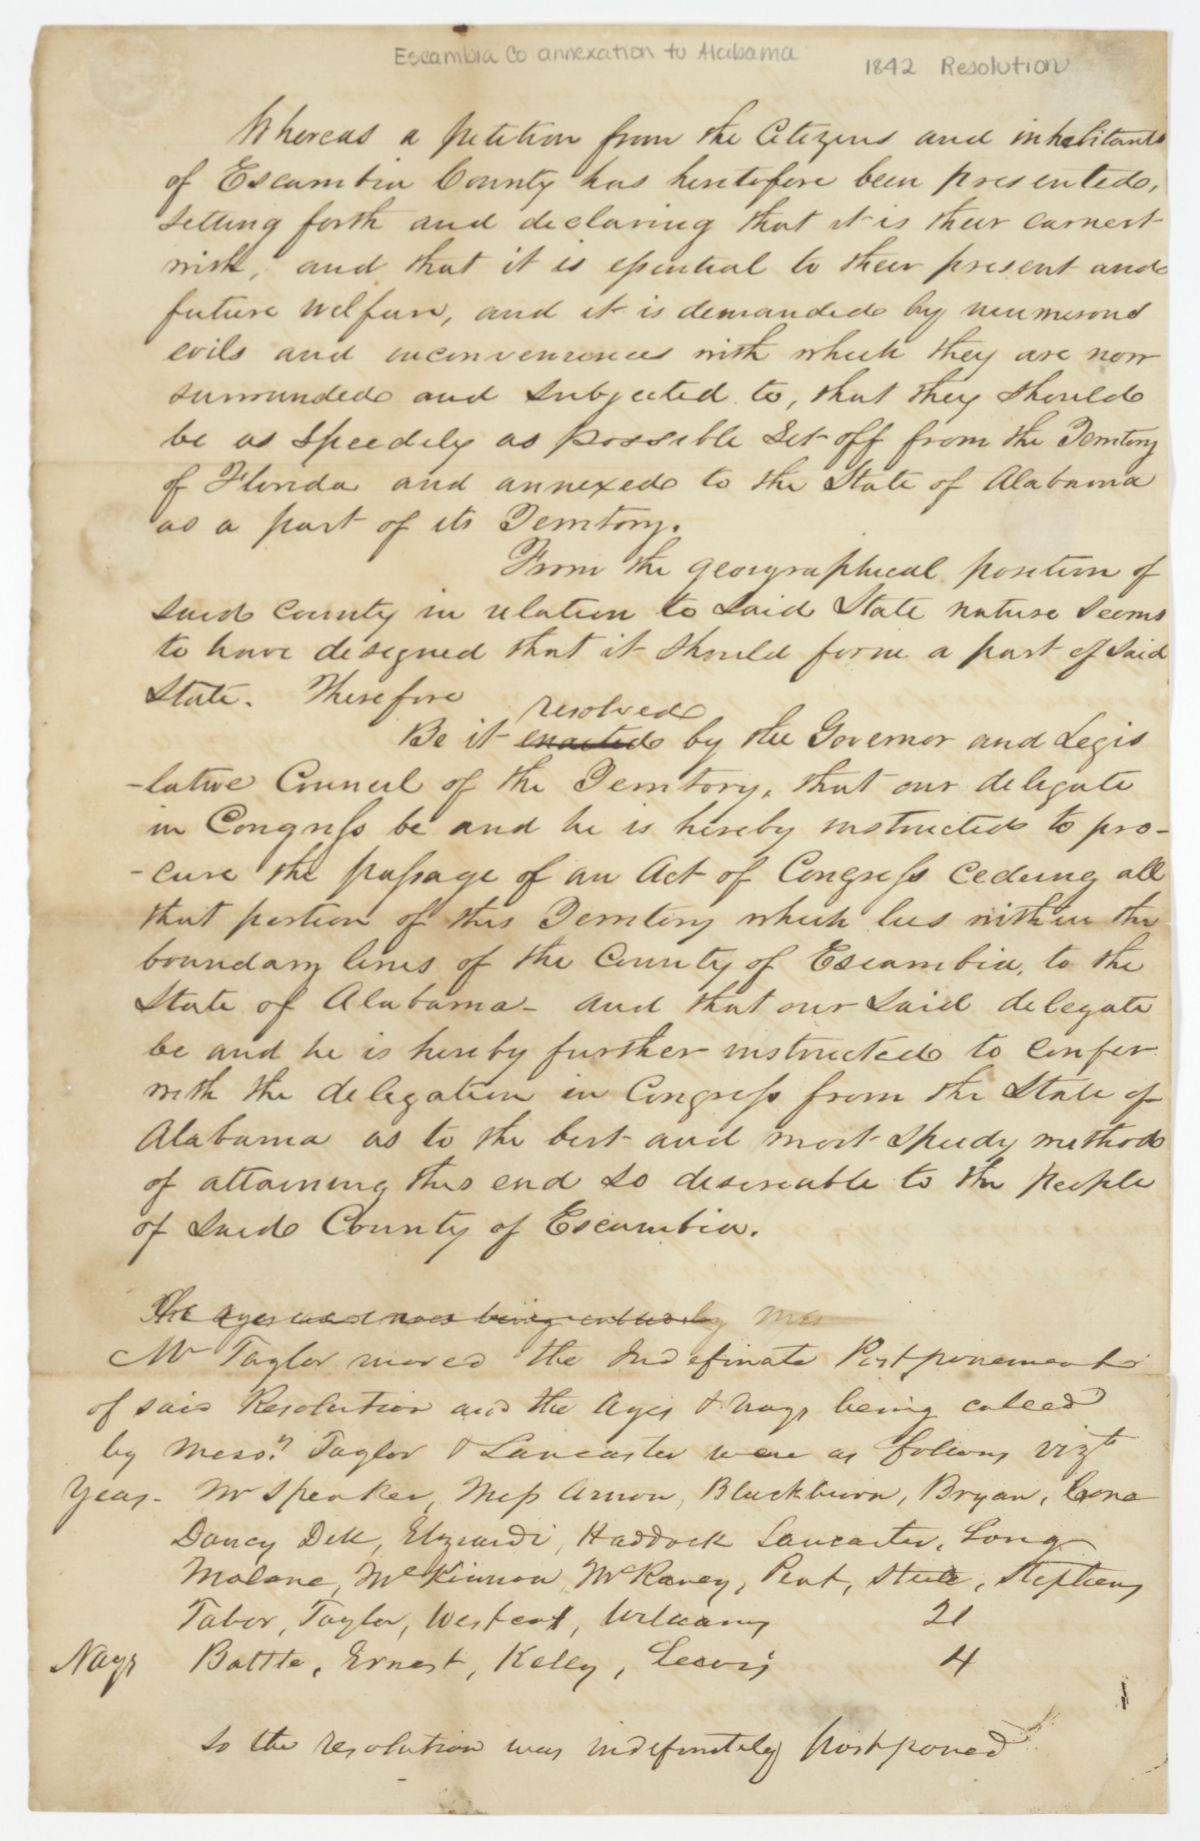 Escambia Co annexation to Alabama
1842 Resolution
Whereas a petition from the Citizens and inhabitants
of Escambia County has heretofore been presented,
setting forth and declaring that it is their earnest
wish, and that it is essential to their present and
future welfare, and it is demanded by numerous
evils and inconveniences with which they are now
surrounded and subjected to, that they should
be as speedily as possible set off from the Territory
of Florida and annexed to the State of Alabama
as a part of its Territory.
From the geographical position of
said County in relation to said State nature seems
to have designed that it should form a part of said
State. Therefore
resolved
Be it enacted by the Governor and Legis
-lative Council of the Territory, that our delegate
in Congress be and he is hereby instructed to pro-
-cure the passage of an Act of Congress Cedeing all
that portion of this Territory which lies within the
boundary lines of the County of Escambia, to the
State of Alabama - and that our said delegate
be and he is hereby further instructed to confer
with the delegation in Congress from the State of
Alabama as to the best and most speedy method
of attaining this end so desireable to the people
of said County of Escambia.
The ayes and noes being called by Mes
Mr Taylor moved the Indefinate Postponement
of said Resolution and the Ayes & Nays being called
by Messrs Taylor & Lancaster were as follows vizt
Yeas - Mr Speaker, Mess Arnow, Blackburn, Bryan, Cone
Dancy Dell, Elzuardi, Haddock Lancaster, Long
Malone, McKinnon, McRaney, Pent, Steele, Stephens
Tabor, Taylor, Westcott, Williams 21
Nays Battle, Ernest, Kelly, Lewis 4
so the resolution was indefinitely postponed